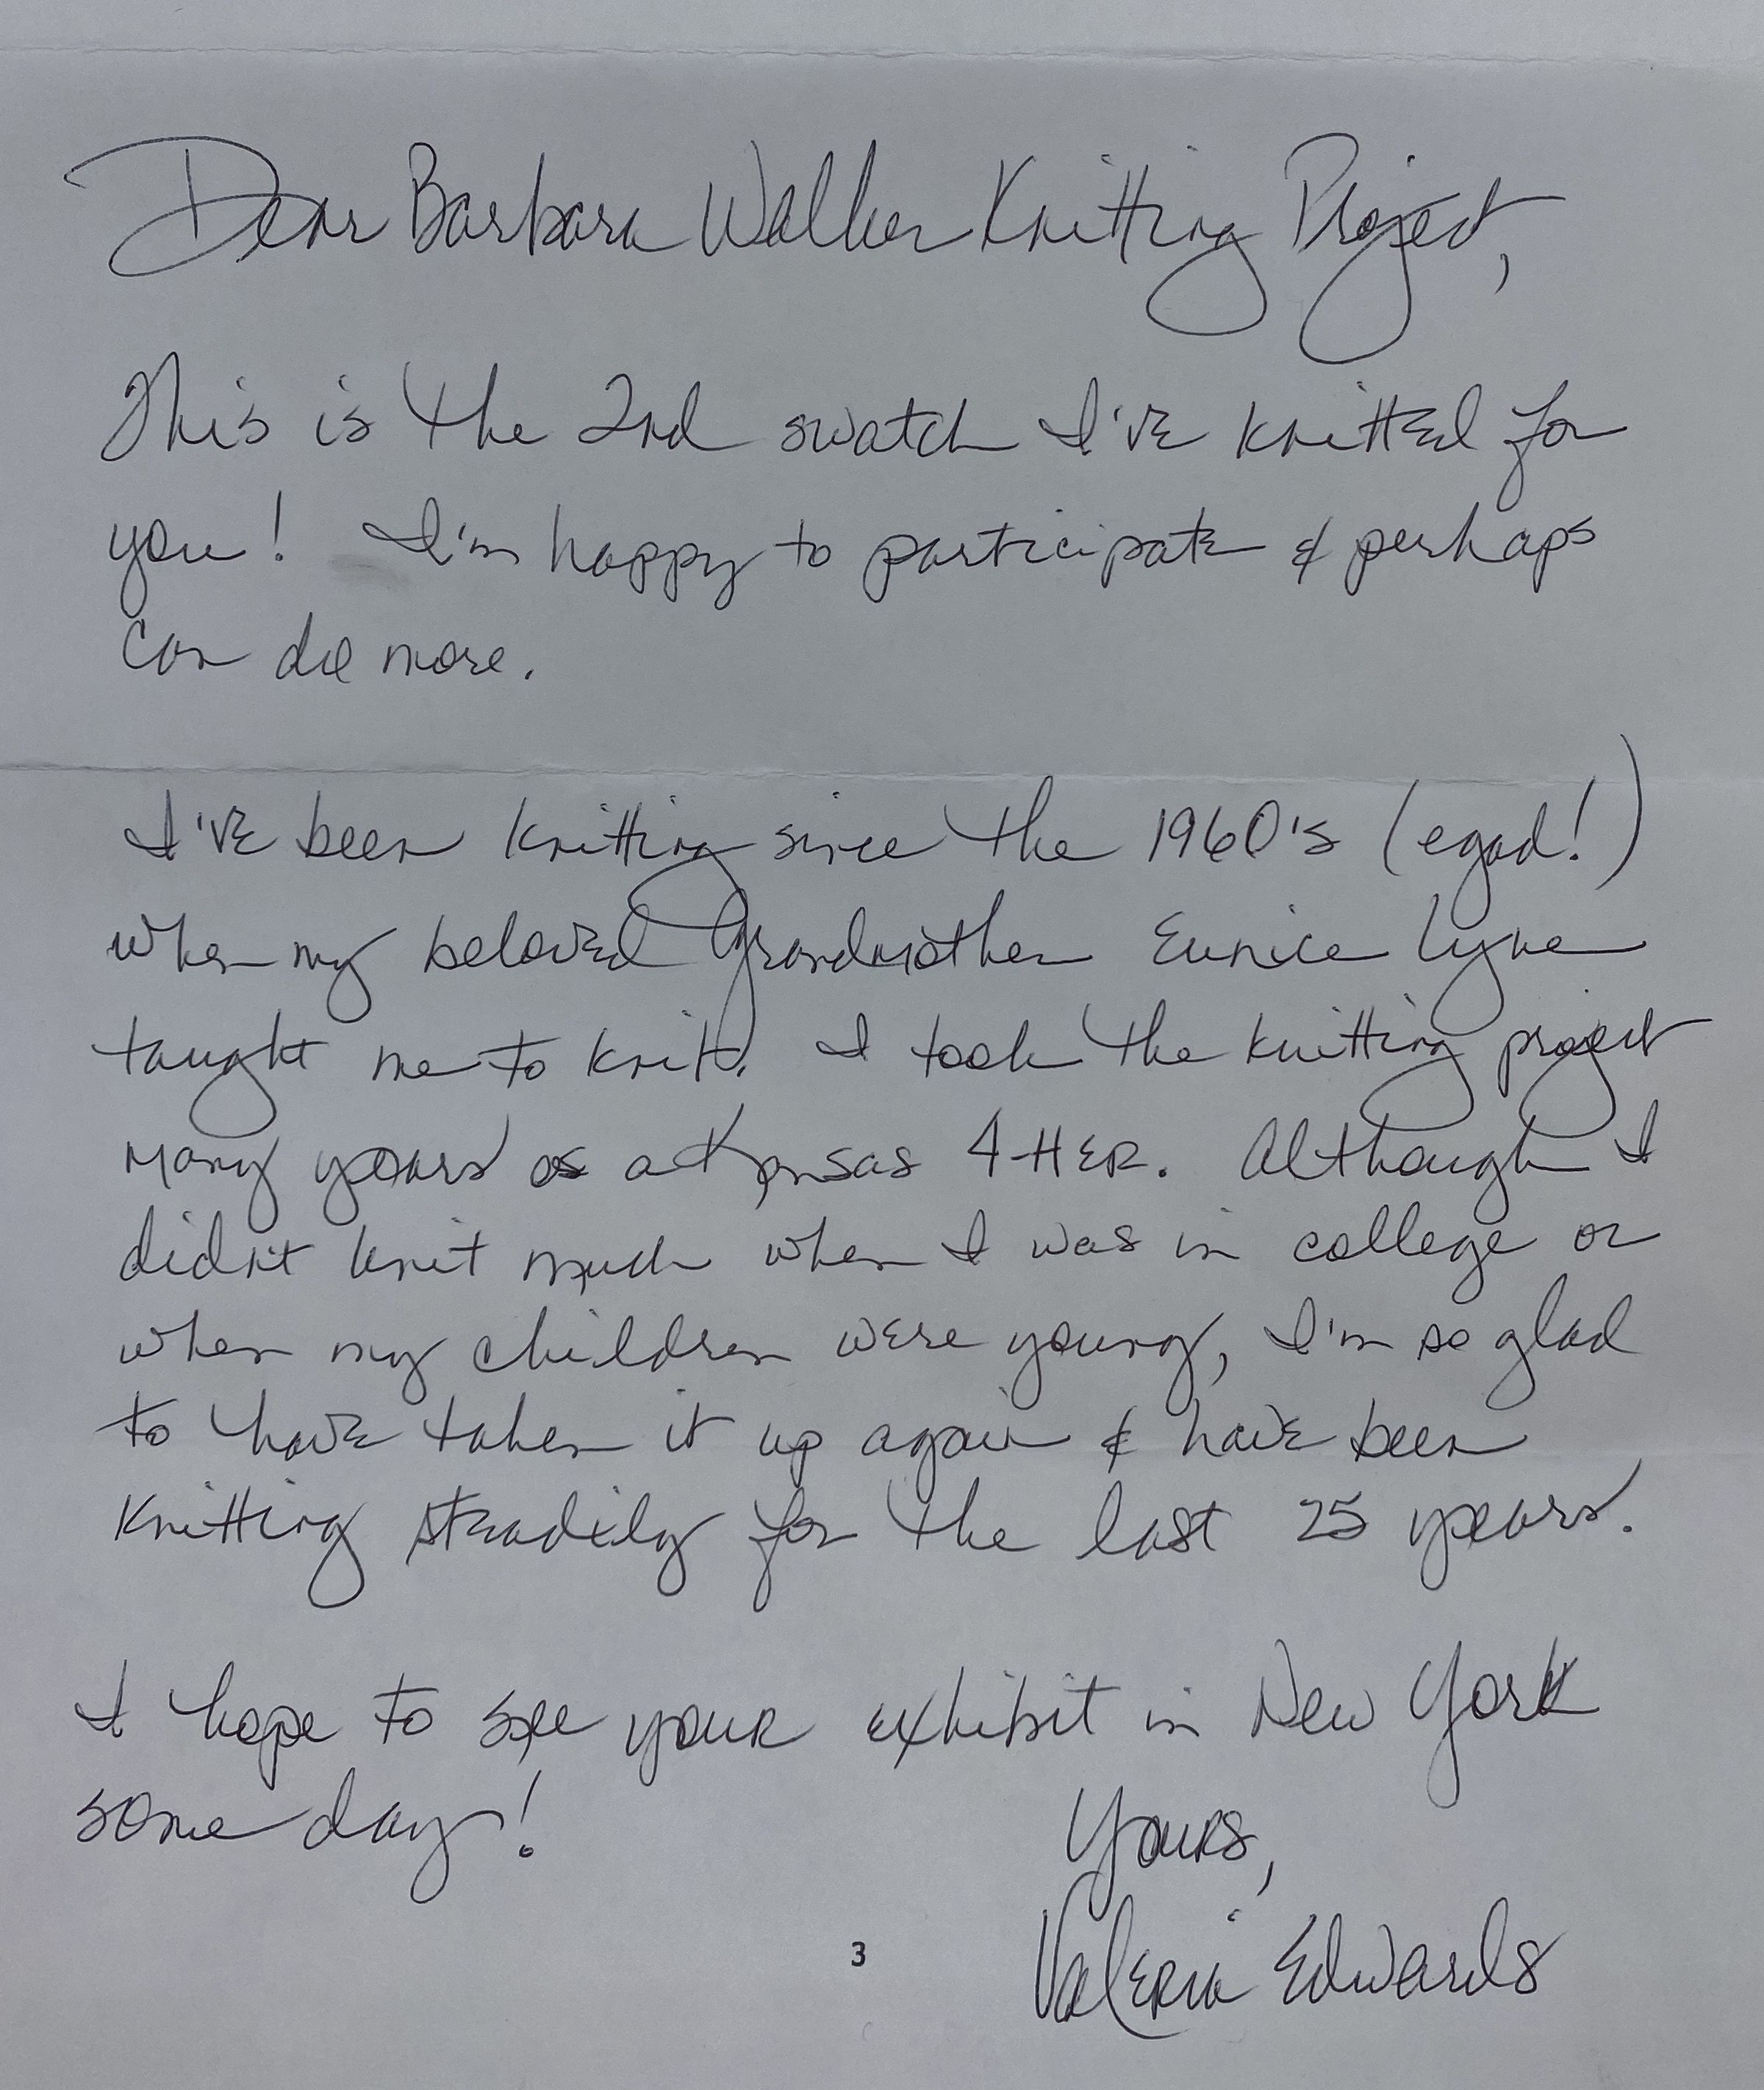 Dear Barbara Walker Knitting Project,
This is the 2nd swatch I've knitted for
you! I'm happy to participate & perhaps
can do more.
I've been knitting since the 1960's (egad!)
when my beloved Grandmother Eunice Lyne
taught me to knit. I took the knitting project
many years as a Kansas 4-HER. Although I
didn't knit much when I was in college or
when my children were young, I'm so glad
to have taken it up again & have been
knitting steadily for the last 25 years.
I hope to see your exhibit in New York
some day!
Yours,
Valerie Edwards
3